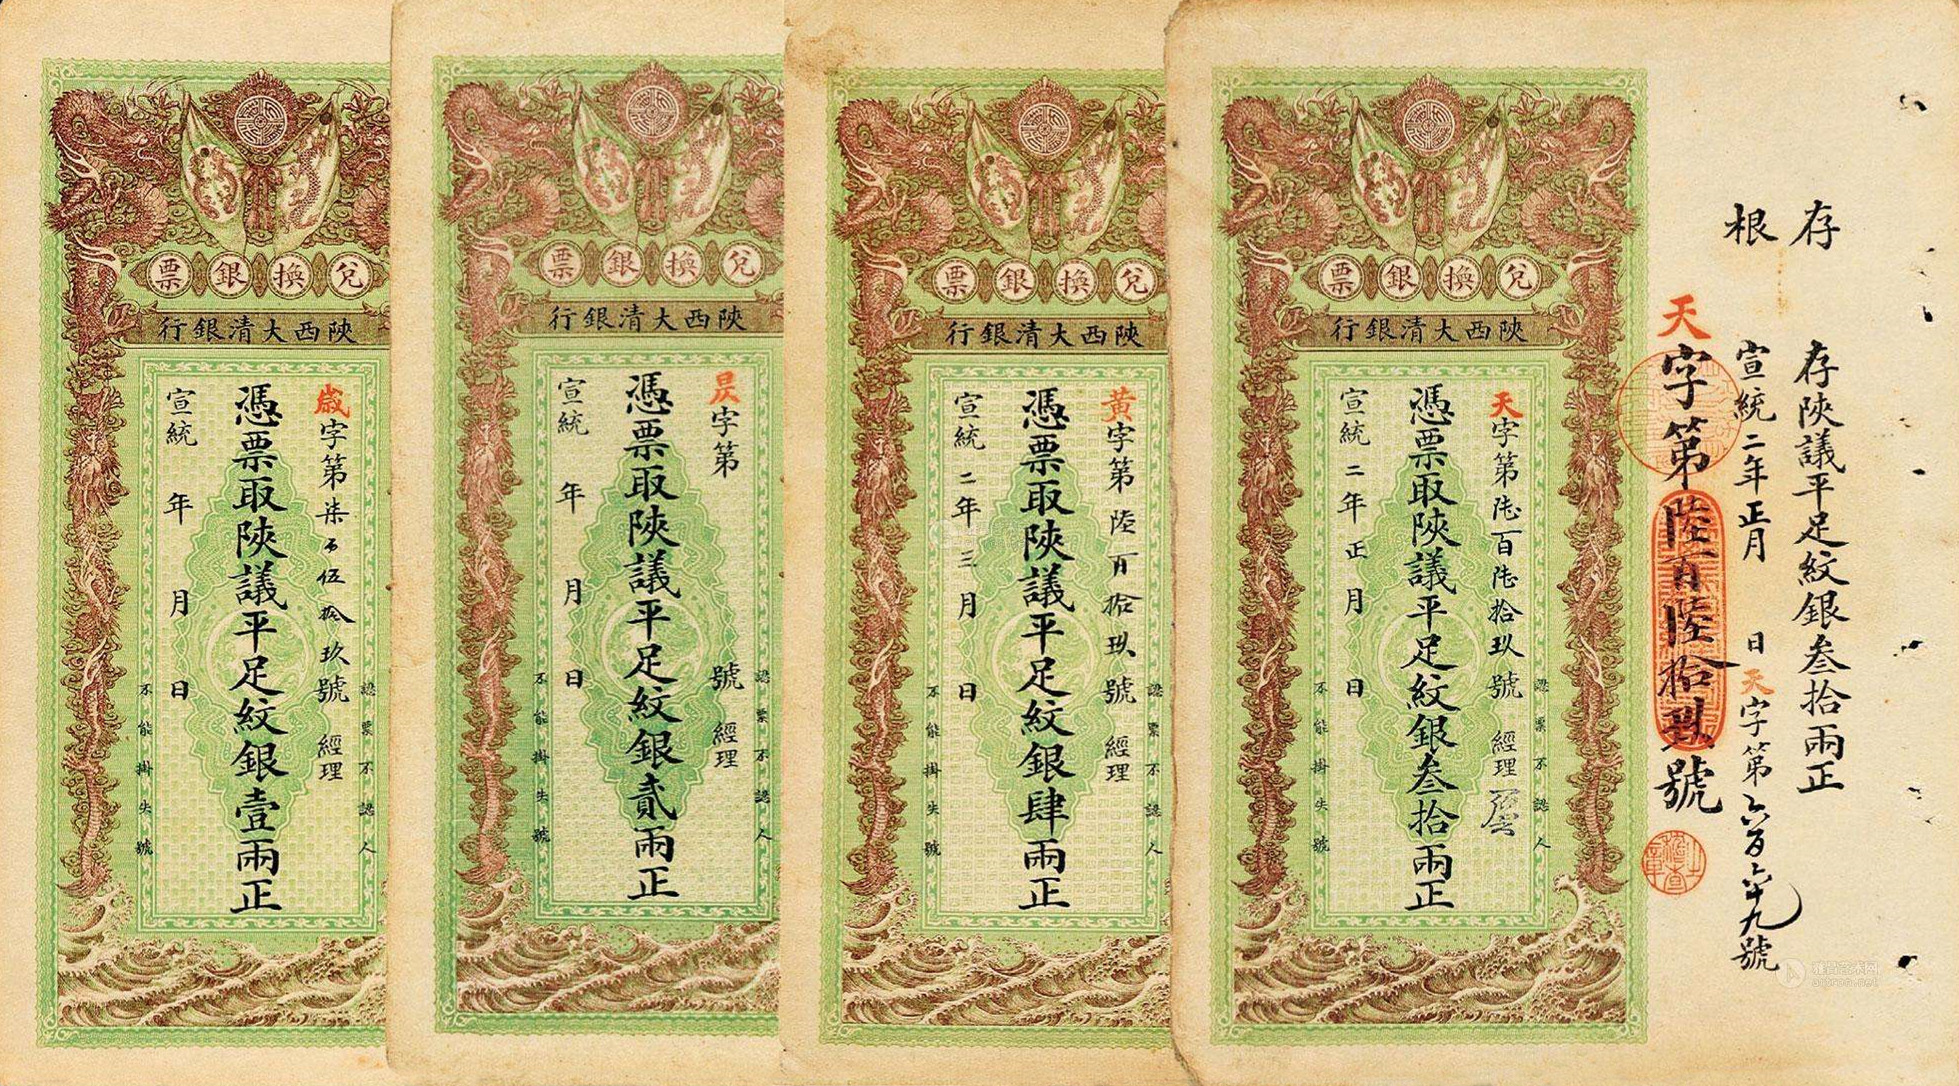 兌換銀票
陝西大清銀行
歲字第柒百伍拾玖號 經理
憑票取陝議平足紋銀壹兩正
宣統 年 月 日
認票不認人
不能掛失號
兌換銀票
陝西大清銀行
昃字第 號 經理
憑票取陝議平足紋銀貳兩正
宣統 年 月 日
認票不認人
不能掛失號
兌換銀票
陝西大清銀行
黃字第陸百拾玖號 經理
憑票取陝議平足紋銀肆兩正
宣統二年三月 日
認票不認人
不能掛失號
兌換銀票
陝西大清銀行
天字第陸百陸拾玖號 經理
憑票取陝議平足紋銀叁拾兩正
宣統二年正月 日
認票不認人
不能掛失號
存根
存陝議平足紋銀叁拾兩正
宣統二年正月 日天字第六百六十九號
天字第陸百陸拾玖號